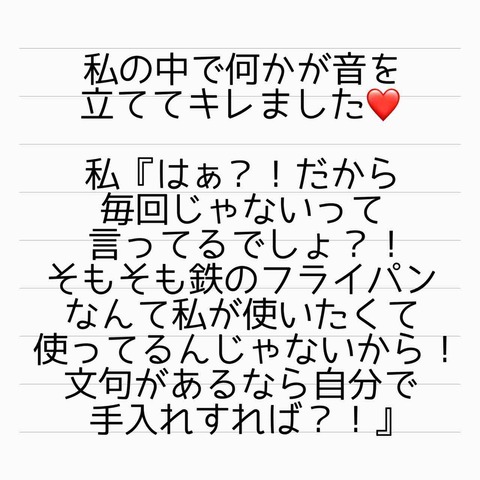 私の中で何かが音を
立ててキレました❤️
私『はぁ？！だから
毎回じゃないって
言ってるでしょ？！
そもそも鉄のフライパン
なんて私が使いたくて
使ってるんじゃないから！
文句があるなら自分で
手入れすれば？！』